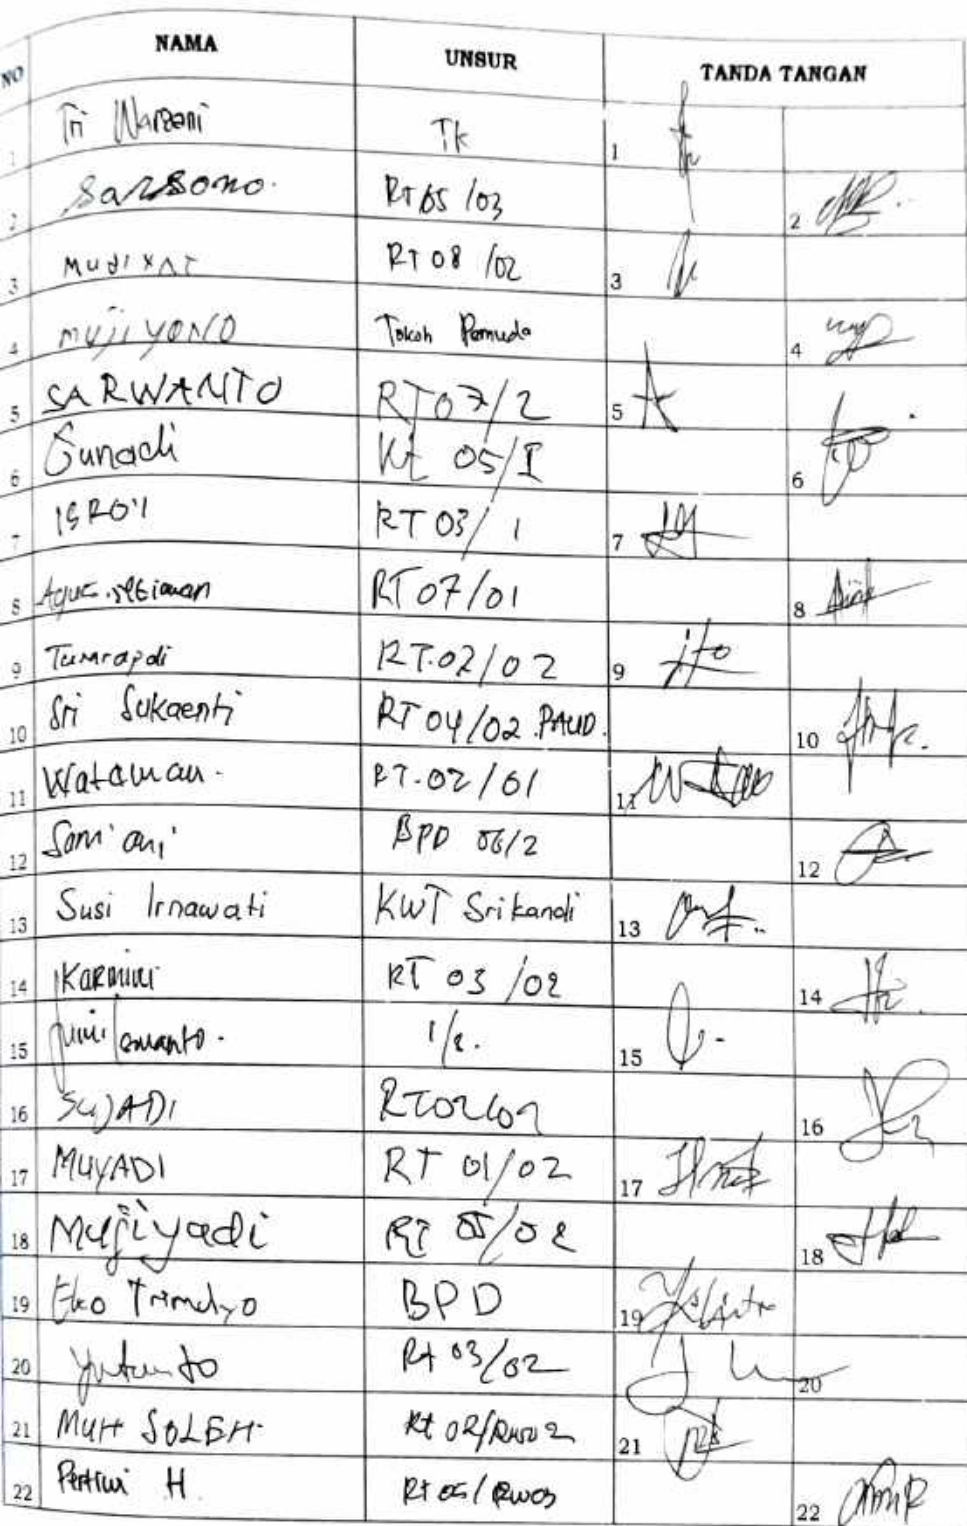 NO NAMA UNSUR TANDA TANGAN
1 Tri Warseni Tk 1
2 Sarsono. RT 05 /03 2
3 RT 08 /02 3
4 mujiyono Tokoh Pemuda 4
5 SARWANTO RT 07/2 5
6 Gunadi Rt 05/I 6
7 ISRO'I RT 03/ 1 7
8 Agus.setiawan RT 07/01 8
9 Tumrapdi RT.02/02 9
10 Sri Sukaenti RT 04/02.PAUD. 10
11 Wataman. RT.02/01 11
12 Som'ani BPD 06/2 12
13 Susi Irnawati KWT Srikandi 13
14 Karmini RT 03 /02 14
15 1/2. 15
16 SUJADI 16
17 MUYADI RT 01/02 17
18 Mujiyadi RT 05/02 18
19 Eko BPD 19
20 Rt 03/02 20
21 MUH SOLEH. Rt 02/RW02 21
22 Pertiwi H. Rt 05/ RW03 22